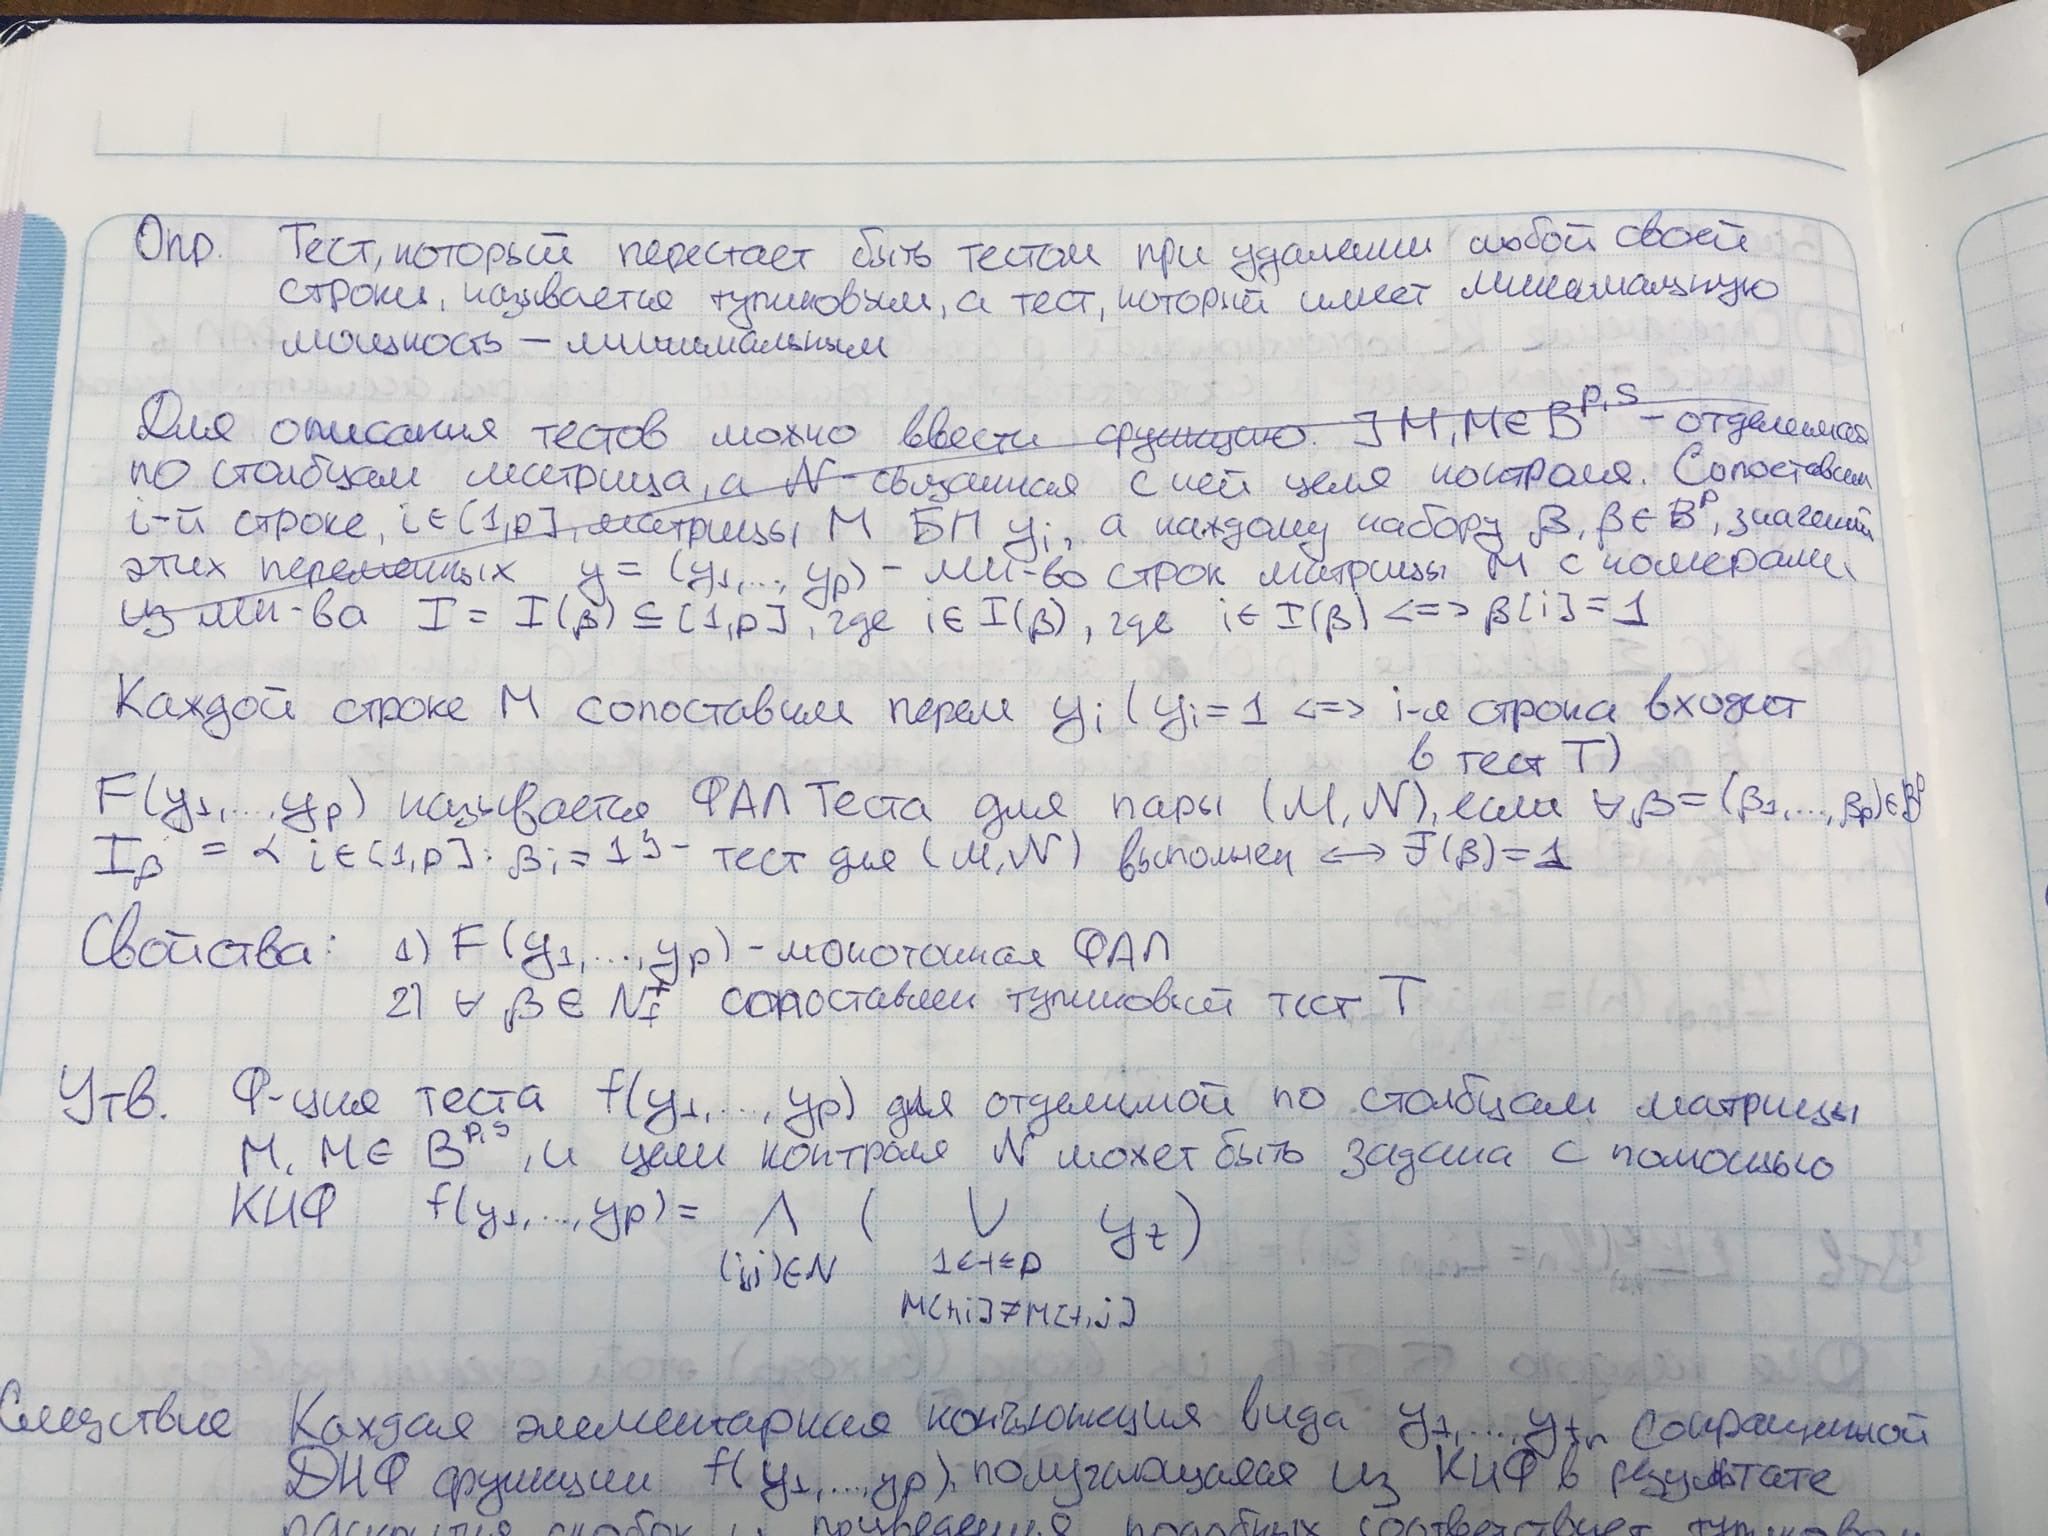 Опр. Тест, который перестает быть тестом при удалении любой своей
строки, называется тупиковым, а тест, который имеет минимальную
мощность — минимальным
Для описания тестов можно ввести функцию. ] M, M ∈ B^{p,s} - отделимая
по столбцам матрица, а N - связанная с ней цель контроля. Сопоставим
i-й строке, i ∈ [1,p], матрицы M БП y_i, а каждому набору β, β ∈ B^p, значений
этих переменных y = (y_1, ..., y_p) - мн-во строк матрицы M с номерами
из мн-ва I = I(β) ⊆ [1,p], где i ∈ I(β), где i ∈ I(β) <=> β[i] = 1
Каждой строке M сопоставим перем y_i (y_i = 1 <=> i-я строка входит
в тест T)
F(y_1, ..., y_p) называется ФАЛ Теста для пары (M, N), если ∀ β = (β_1, ..., β_p) ∈ B^p
I_β = { i ∈ [1,p] : β_i = 1 } - тест для (M, N) выполнен <-> F(β) = 1
Свойства: 1) F(y_1, ..., y_p) - монотонная ФАЛ
2) ∀ β ∈ N_f^+ сопоставлен тупиковый тест T
Утв. Ф-ция теста f(y_1, ..., y_p) для отделимой по столбцам матрицы
M, M ∈ B^{p,s}, и цели контроля N может быть задана с помощью
КНФ f(y_1, ..., y_p) = ∧ ( ∨ y_t )
(i,j) ∈ N 1 ≤ t ≤ p
M[t,i] ≠ M[t,j]
Следствие Каждая элементарная конъюнкция вида y_1, ..., y_{t_n} сокращенной
ДНФ функции f(y_1, ..., y_p), получающаяся из КНФ в результате
раскрытия скобок и приведения подобных соответствует